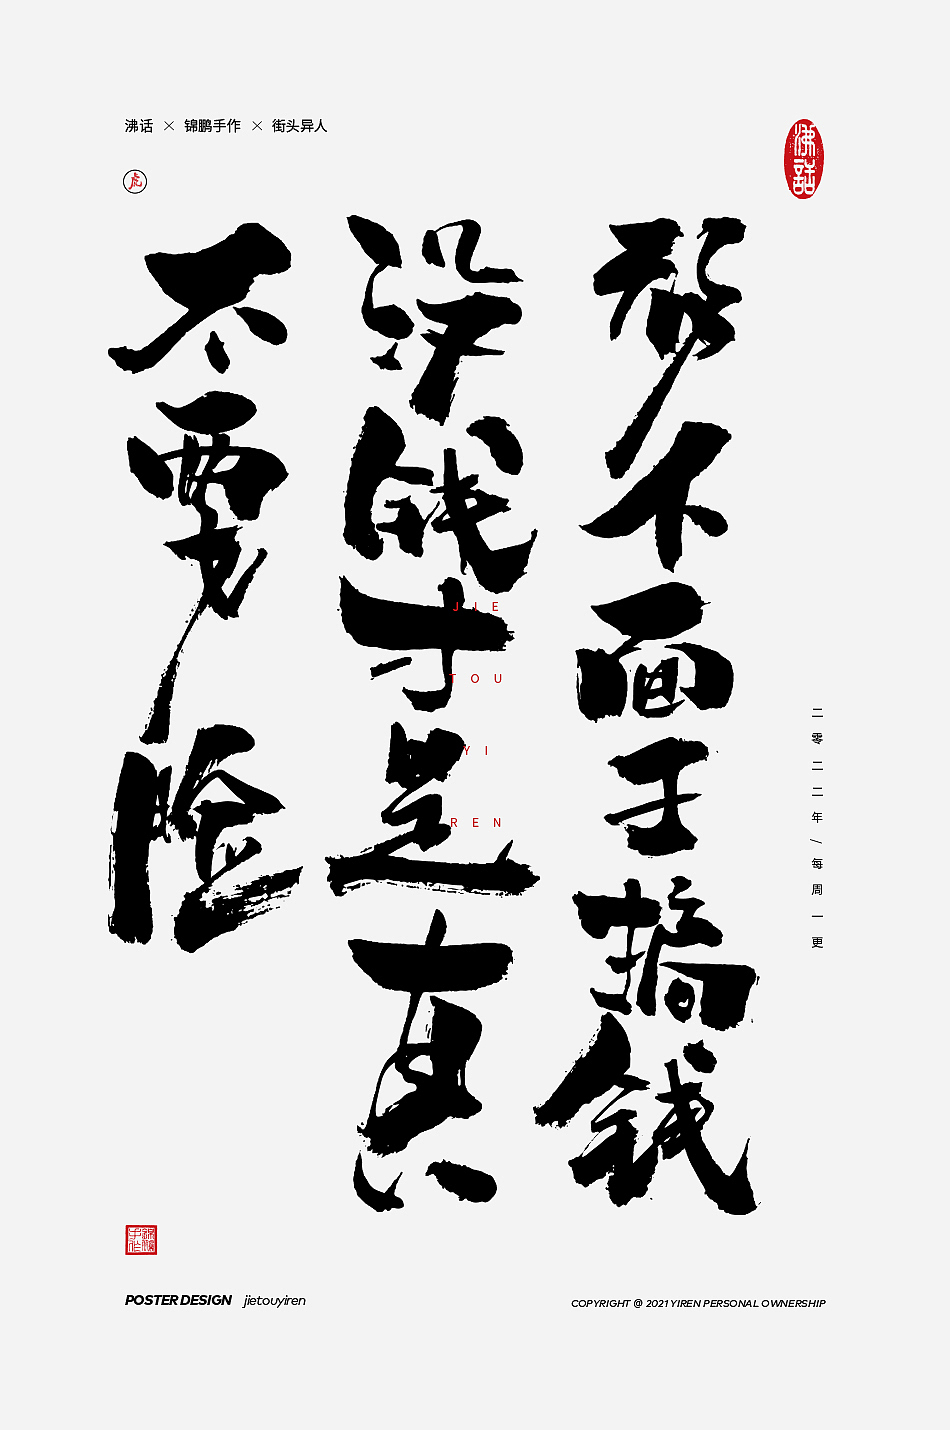 沸话 × 锦鹏手作 × 街头异人
沸話
虎
放下面子搞钱
没钱才是真
不要脸
JIE
TOU
YI
REN
二零二二年/每周一更
POSTER DESIGN jietouyiren
COPYRIGHT @ 2021 YIREN PERSONAL OWNERSHIP